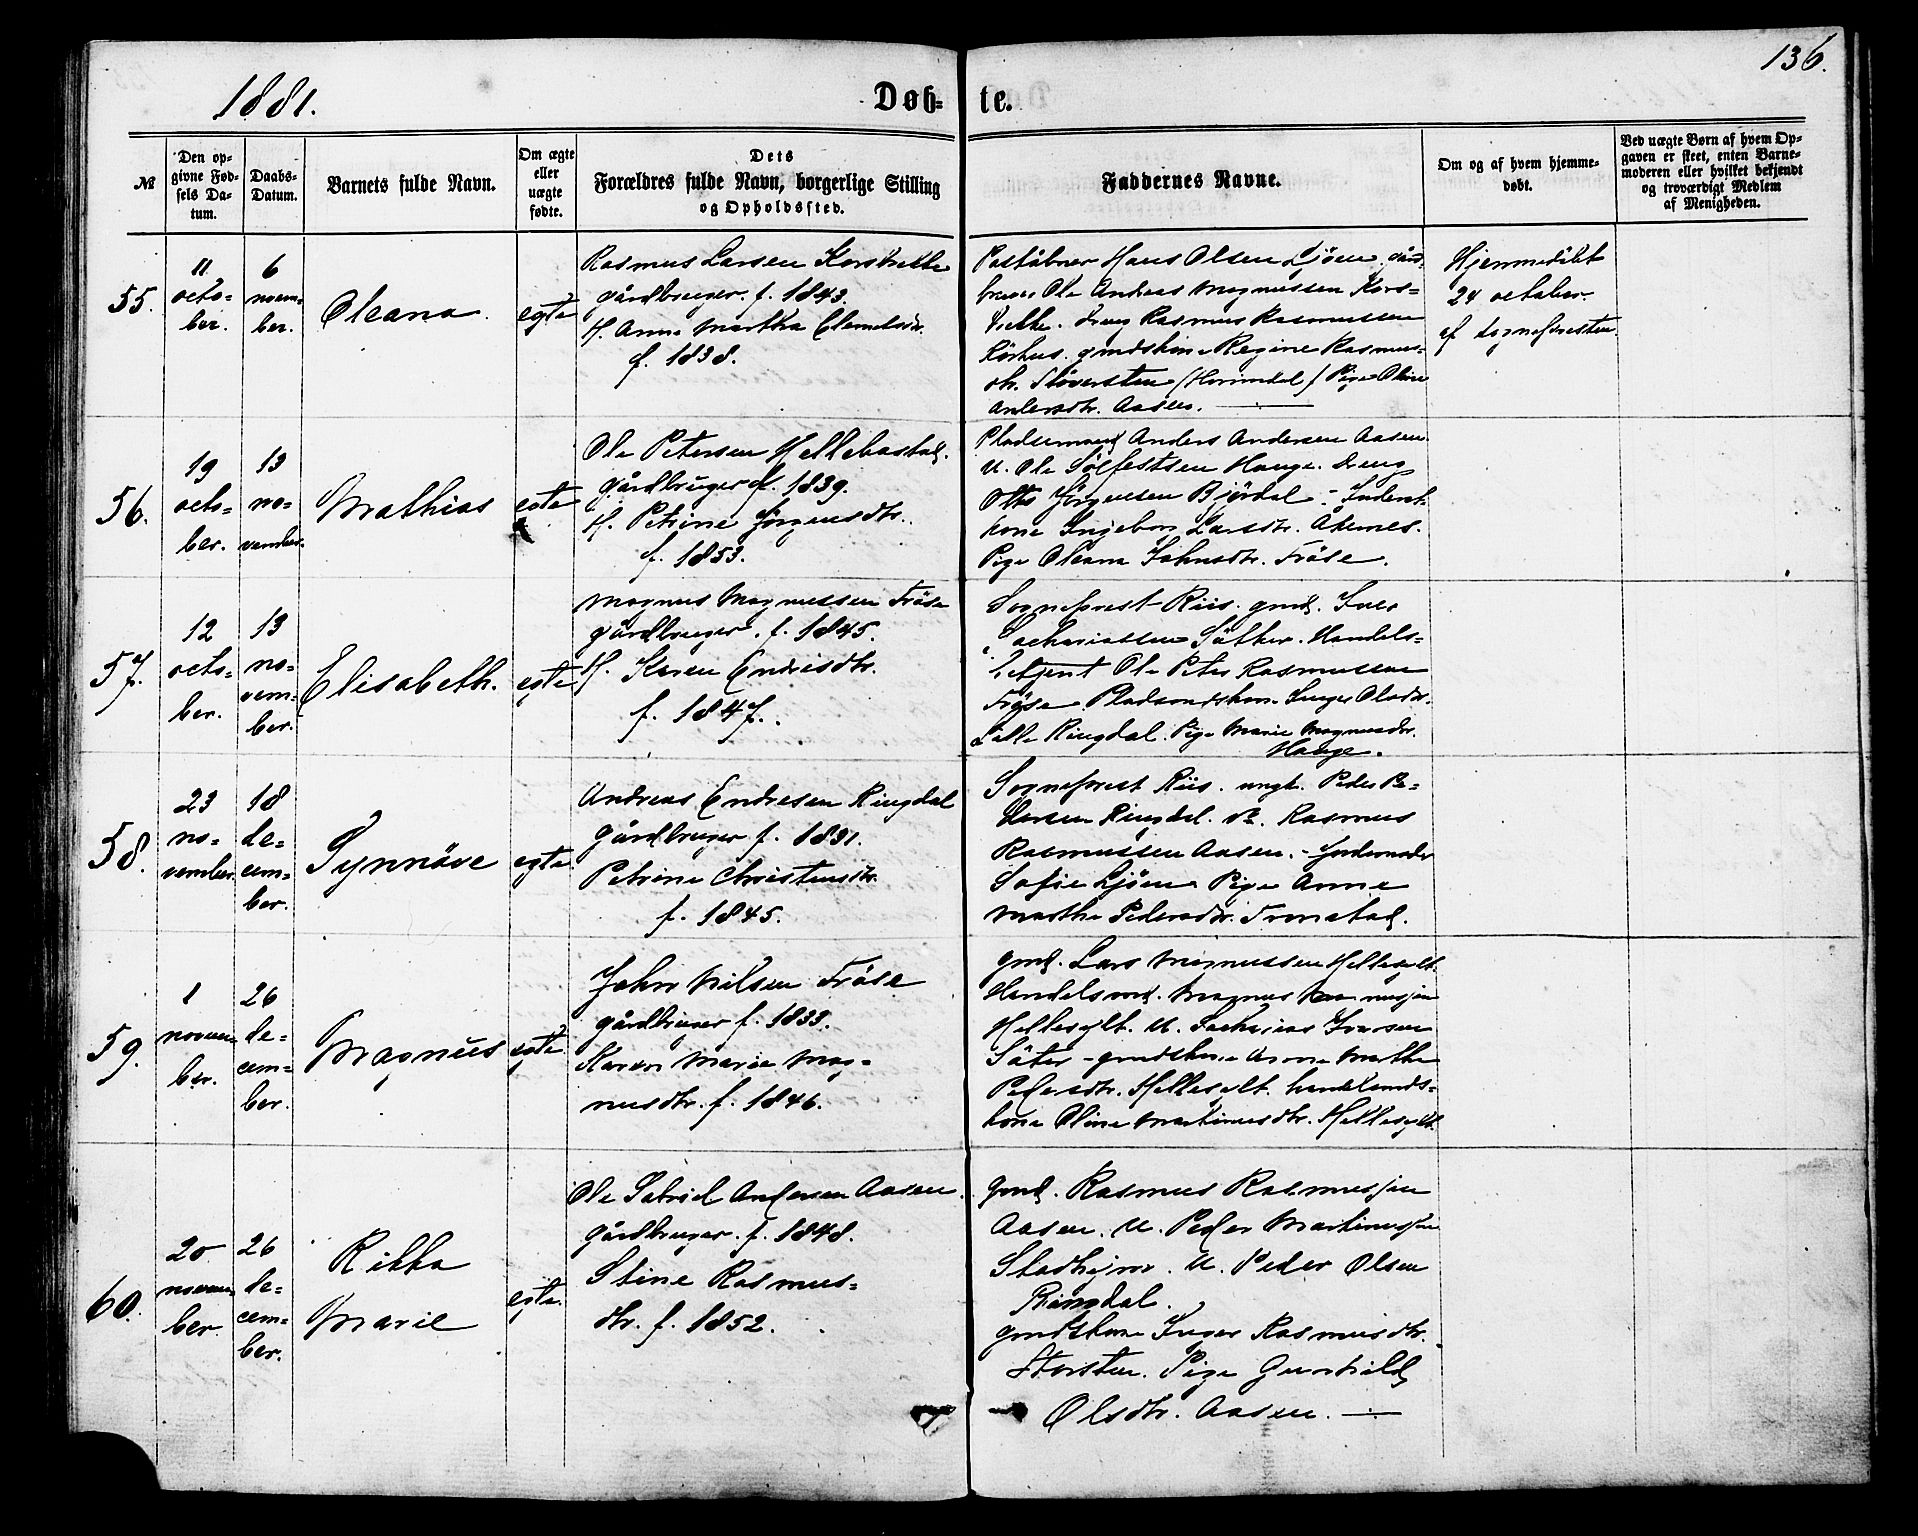 136.
1881.
Døb- te.
№
Den op-
givne Fød-
sels Da-
tum.
Daabs-
Datum.
Barnets fulde Navn.
Om ægte
eller
uægte
fødte.
Dets
Forældres fulde Navn, borgerlige Stilling
og Opholdssted.
Faddernes Navne.
Om og af hvem hjemme-
døbt.
Ved uægte Børn af hvem Op-
gaven er skeet, enten Barne-
moderen eller hvilket bekjendt
og troværdigt Medlem
af Menigheden.
55.
11
octo-
ber.
6
novem-
ber.
Oleana.
egte
Rasmus Larsen Korsbrekke
gårdbruger. f. 1843.
H. Anne Martha Clemetsdtr.
f. 1838.
Poståbner Hans Olsen Ljöen. gård
bruger Ole Andreas Magnussen Kors-
brekke. Dreng Rasmus Rasmussen
gmdskone Regine Rasmus-
dtr. (Hornindal) Pige Oline
Andersdtr. Aasen.
Hjemmedöbt
24 october
af sognepresten.
56.
19
octo-
ber.
13
no-
vember.
Mathias
egte
Ole Petersen Hellebostad.
gårdbruger f. 1839.
H. Petrine Jörgensdtr.
f. 1853.
Pladsemand Anders Andersen Aasen
U. Ole Sölfestsen Hauge. Dreng
Otto Jörgensen Björdal - Inderst-
kone Ingeborg Larsdtr. Åkernes.
Pige Oleana Johnsdtr. Tröse.
57.
12
octo-
ber.
13
no-
vem-
ber.
Elisabeth.
egte
Magnus Magnussen Tröse
gårdbruger. f. 1845.
H. Karen Endresdtr.
f. 1847.
Sogneprest Riis. gmd. Iver
Sachariassen Säther. Handels-
betjent Ole Peter Rasmussen
Tröse. Pladsmandskone Inger Olsdtr.
Lille Ringdal. Pige Marie Magnusdtr.
Hauge.
58.
23
no-
vember.
18
de-
cem-
ber.
Synnöve
egte
Andreas Endresen Ringdal
gårdbruger f. 1831.
Petrine Christensdtr.
f. 1845.
Sogneprest Riis. ungk. Peder Pe-
dersen Ringdal. Rasmus
Rasmussen Aasen. - Jordemoder
Sofie Ljöen Pige Anne
Martha Pedersdtr. Tronstad.
59.
1
novem-
ber.
26
de-
cem-
ber.
Magnus
egte
John Nilsen Tröse
gårdbruger f. 1833.
Karen Marie Mag-
nusdtr. f. 1846.
gmd. Lars Magnussen Hellesylt.
Handelsmd. Magnus
Hellesylt. U. Sacharias Iversen
Säter - gmdskone Anne Marthe
Pedersdtr. Hellesylt. handelsmds-
kone Oline Martinusdtr. Hellesylt.
60.
20
novem-
ber
26
de-
cem-
ber.
Rikka
Marie
egte.
Ole Gabriel Andersen Aasen.
gårdbruger. f. 1848.
Stine Rasmus-
dtr. f. 1852.
gmd. Rasmus Rasmussen
Aasen. U. Peder Martinussen
Stadheim. U. Peder Olsen
Ringdal.
gmdskone Inger Rasmusdtr.
Pige Gunhild
Olsdtr. Aasen.